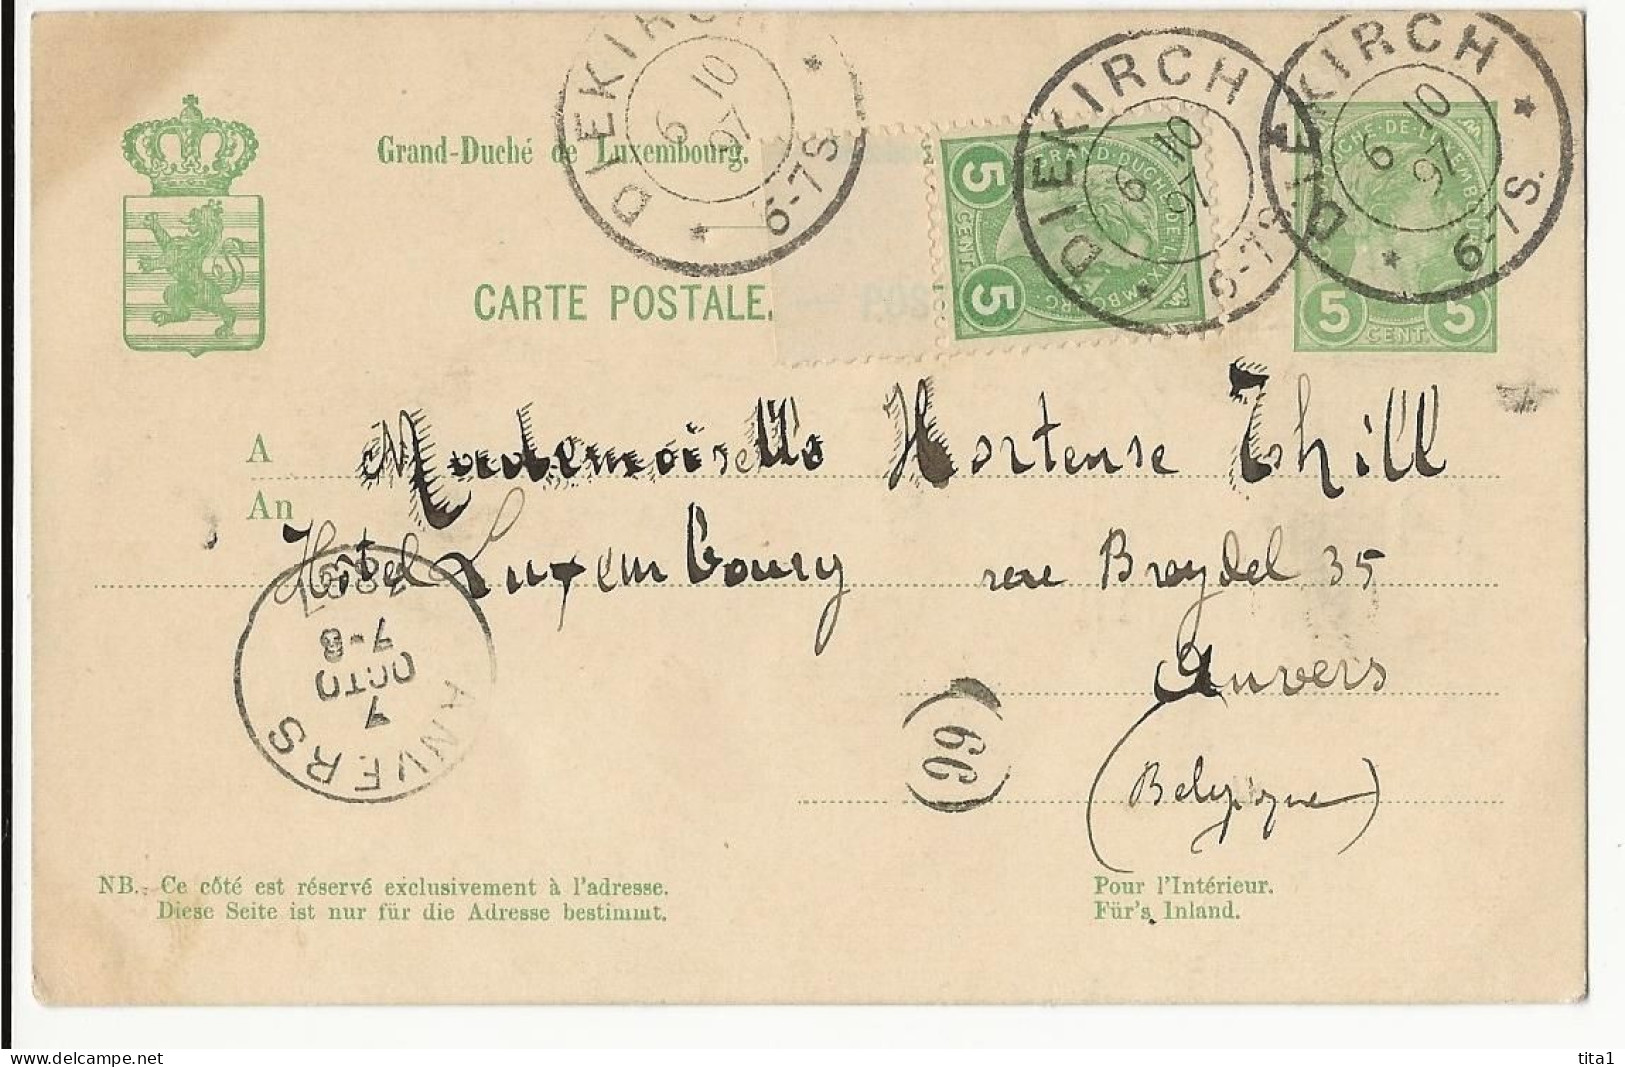 DIEKIRCH
6 10 97
6-7S.
DIEKIRCH
6 10 97
6-7S.
DIEKIRCH
6 10 97
6-7S.
Grand-Duché de Luxembourg.
CARTE POSTALE.
POS
5 CENT. 5
GRAND-DUCHÉ DE LUXEMBOURG
5 CENT. 5
A Mademoiselle Hortense Thill
An
Hôtel Luxembourg rue Breydel 35
Anvers
(Belgique)
ANVERS
7
OCTO
7-8
1897
(66)
NB. Ce côté est réservé exclusivement à l'adresse.
Diese Seite ist nur für die Adresse bestimmt.
Pour l'Intérieur.
Für's Inland.
tita1